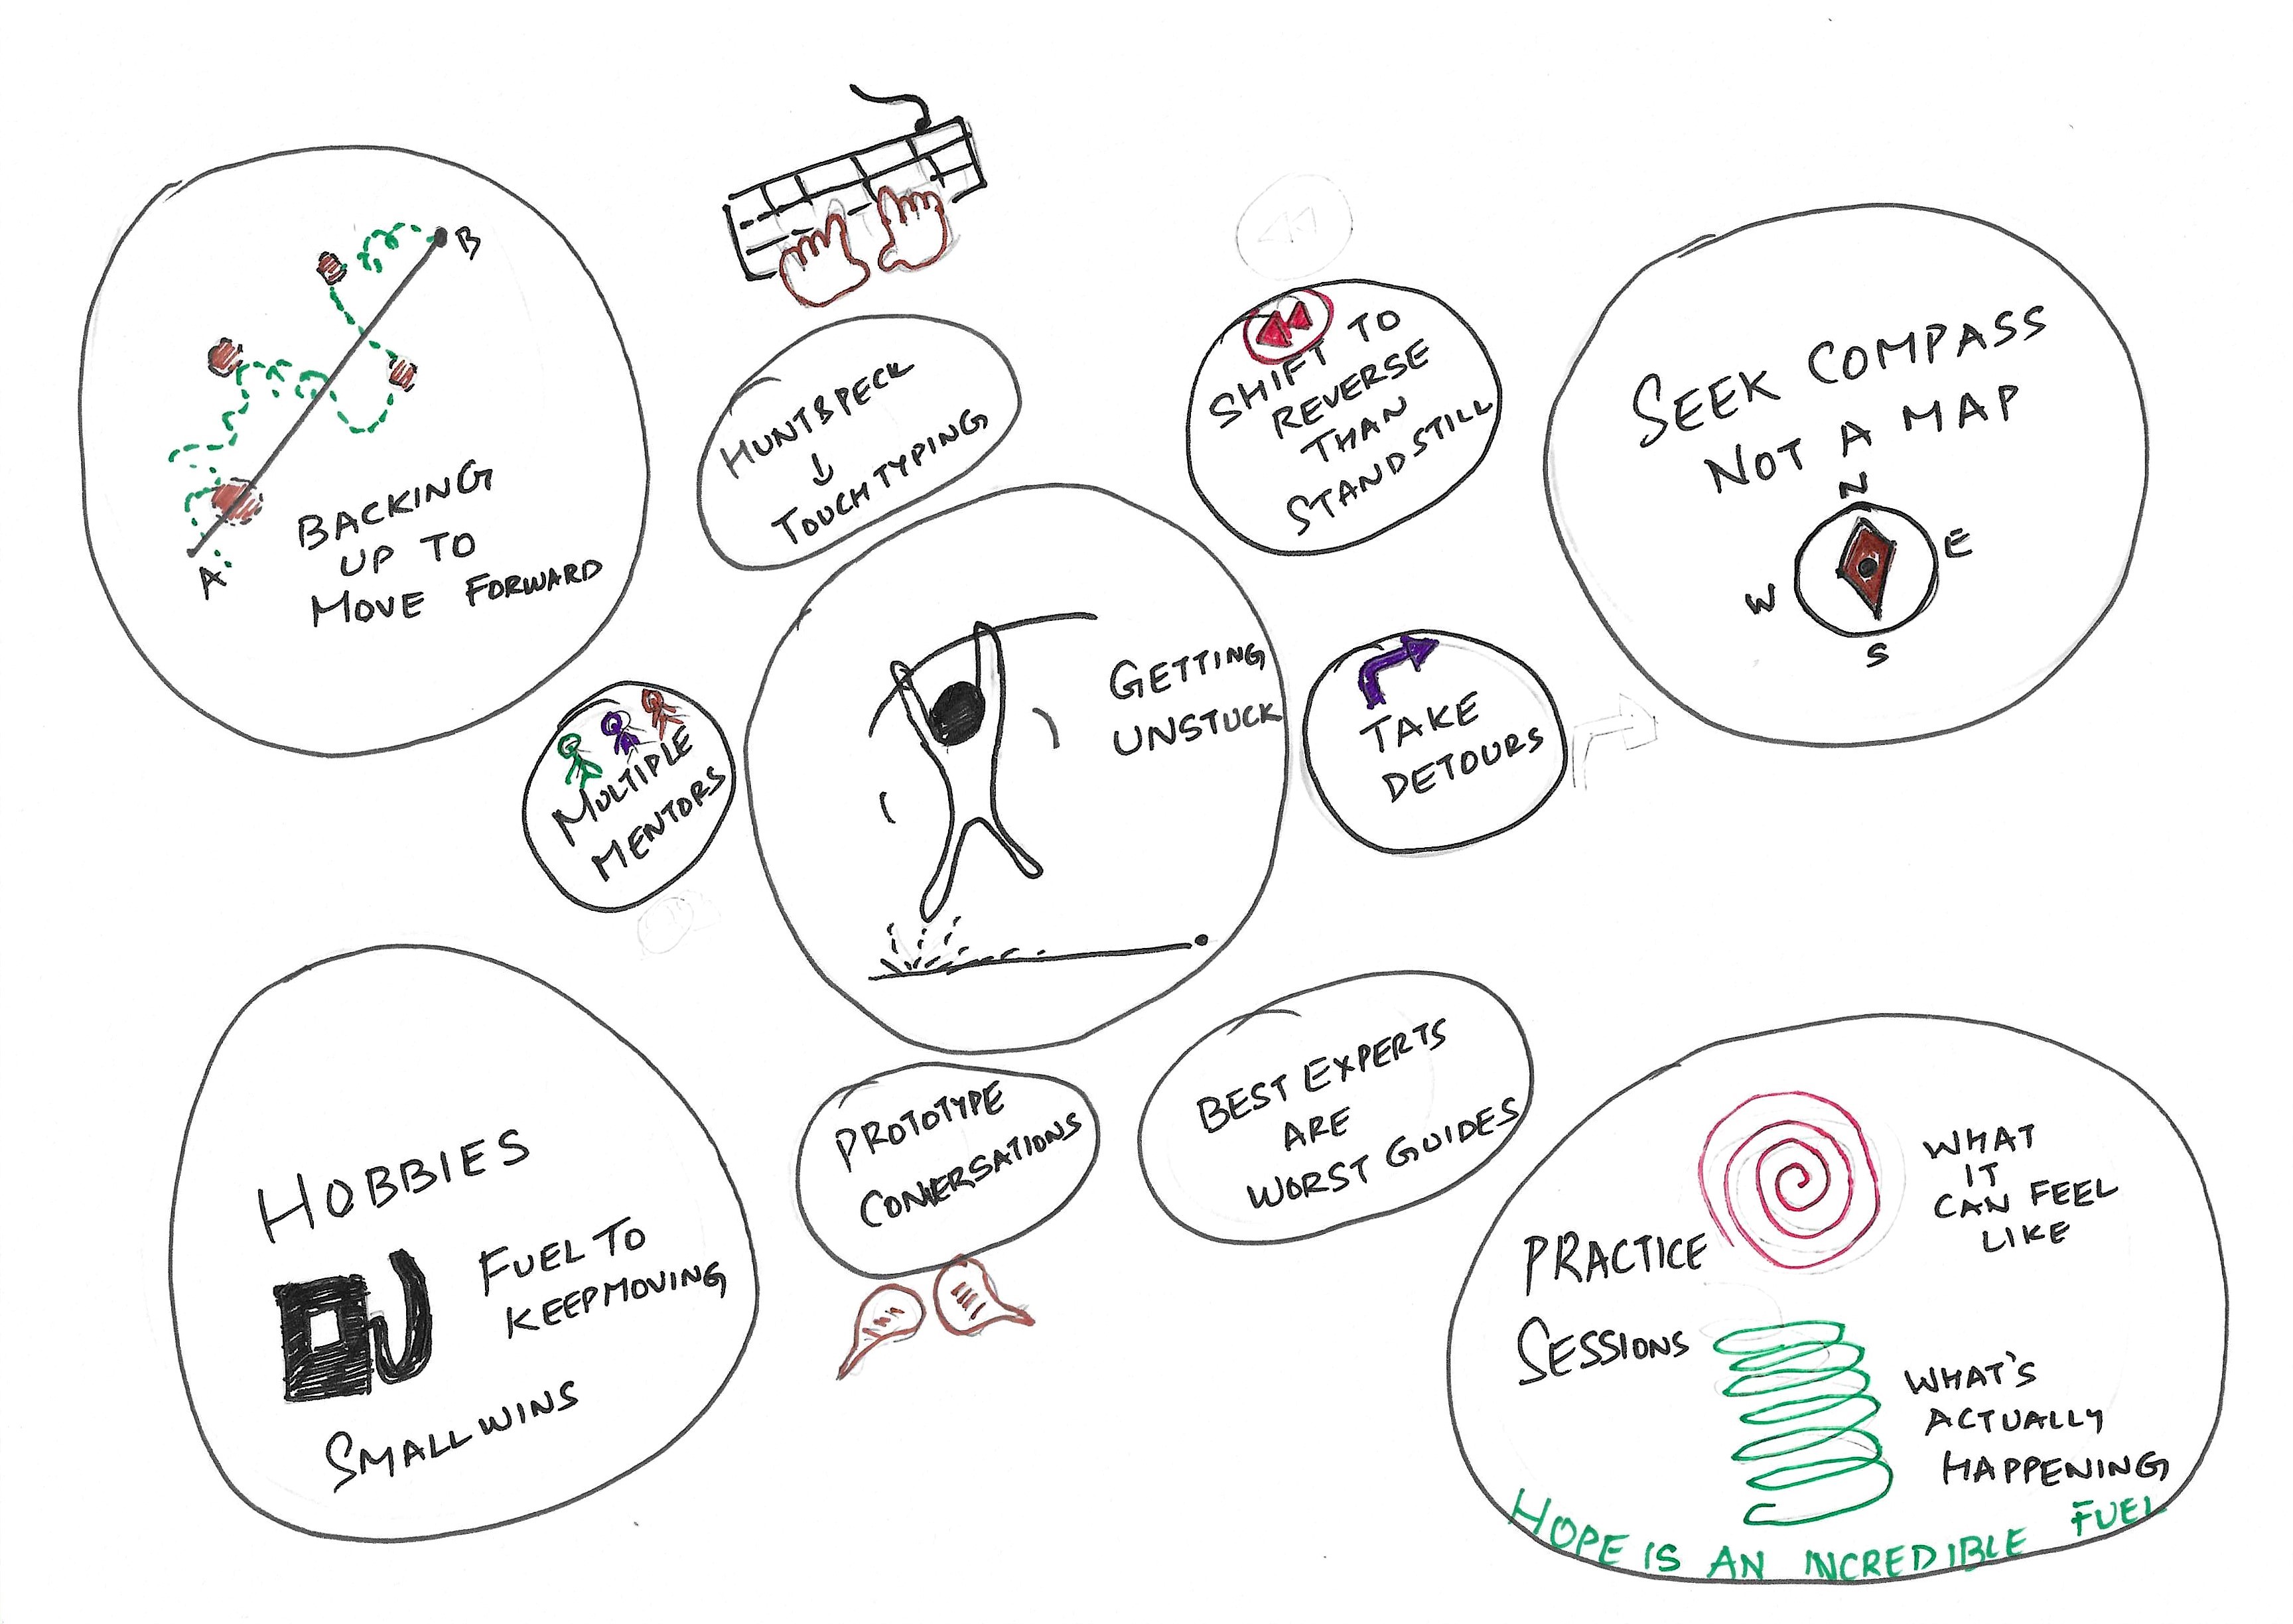 B
A
BACKING
UP TO
MOVE FORWARD
HUNT&PECK
↓
TOUCH TYPING
SHIFT TO
REVERSE
THAN
STANDSTILL
SEEK COMPASS
NOT A MAP
N
E
W
S
MULTIPLE
MENTORS
GETTING
UNSTUCK
TAKE
DETOURS
HOBBIES
FUEL TO
KEEP MOVING
SMALL WINS
PROTOTYPE
CONVERSATIONS
BEST EXPERTS
ARE
WORST GUIDES
PRACTICE
SESSIONS
WHAT
IT
CAN FEEL
LIKE
WHAT'S
ACTUALLY
HAPPENING
HOPE IS AN INCREDIBLE FUEL